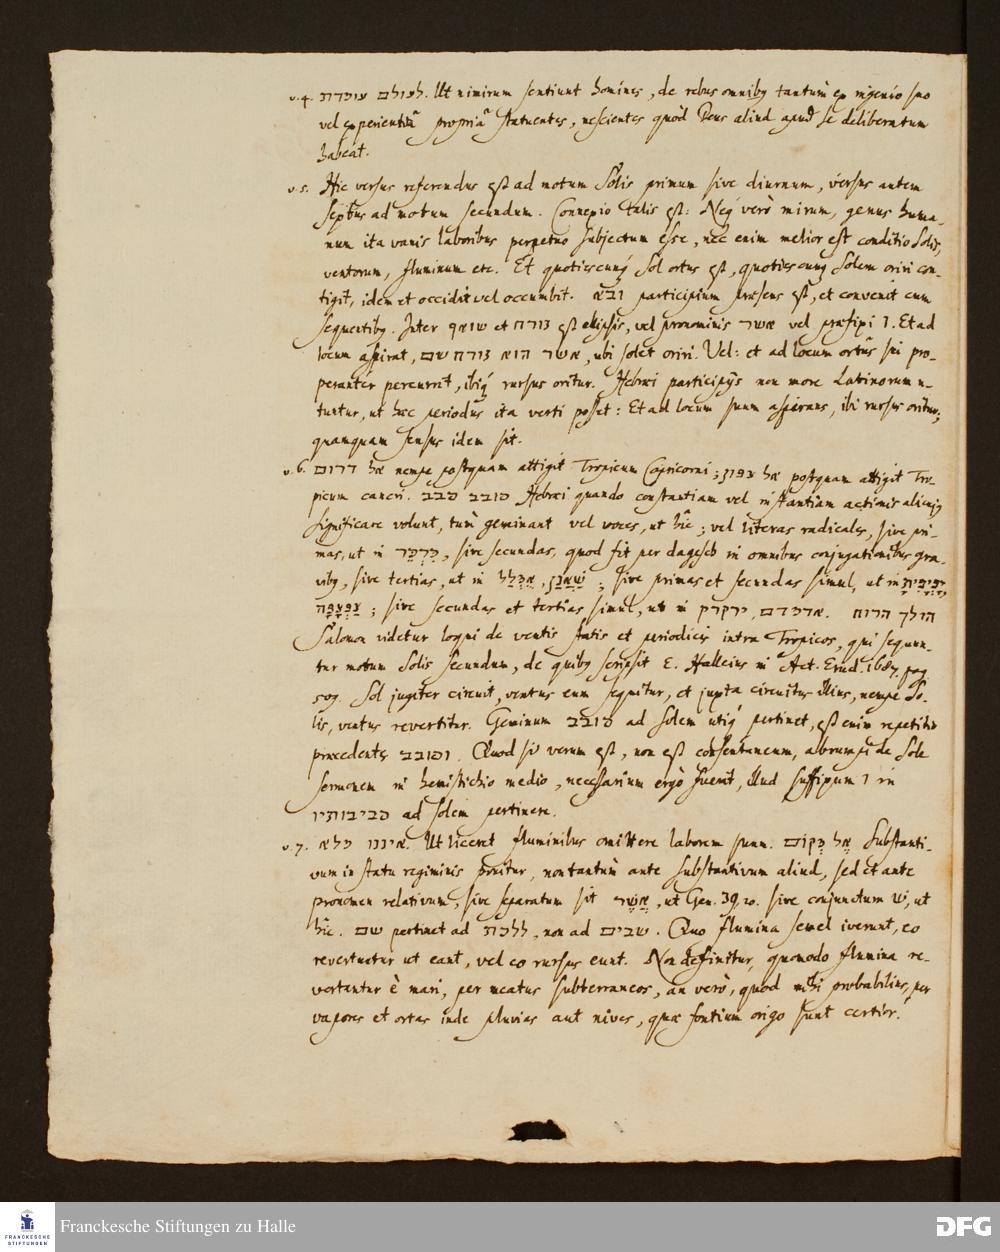 v. 4. לעולם עומדת. Ut nimirum sentiunt homines, de rebus omnibꝰ tantùm ex ingenio suo
vel experientiâ propriâ statuentes, nescientes quòd Deus aliud apud se deliberatum
habeat.
v. 5. Hic versus referendus est ad motum Solis primum sive diurnum, versus autem
sextus ad motum secundum. Connexio talis est: Neqꝫ verò mirum, genus huma-
num ita vanis laboribus perpetuo subjectum esse, nec enim melior est conditio Solis,
ventorum, fluminum etc. Et quotiescunqꝫ Sol ortus est, quotiescunqꝫ Solem oriri con-
tigit, idem et occidit vel occumbit. ובא participium praesens est, et convenit cum
sequentibꝰ. Inter שואף et זורח est ellipsis, vel pronominis אשר vel praefixi ו. Et ad
locum aspirat, אשר הוא זורח שם, ubi solet oriri. Vel: et ad locum ortûs sui pro-
peranter percurrit, ibiqꝫ rursus oritur. Hebraei participijs non more Latinorum u-
tuntur, ut haec periodus ita verti posset: Et ad locum suum aspirans, ibi rursus oritur;
quamquam sensus idem sit.
v. 6. אל דרום nempe postquam attigit Tropicum Capricorni; אל צפון postquam attigit Tro-
picum cancri. סובב סבב Hebraei quando constantiam vel instantiam actionis alicujꝰ
significare volunt, tum geminant vel voces, ut hîc; vel literas radicales, sive pri-
mas, ut in, sive secundas, quod fit per dagesch in omnibus conjugationibus gra-
vibꝰ, sive tertias, ut in שַׁאֲנַן, אֻמְלַל; sive primas et secundas simul, ut in יְפֵיפִית,
צַפְצָפָה; sive secundas et tertias simul, ut in אדמדם, ירקרק. הולך הרוח
Salomon videtur loqui de ventis statis et periodicis intra Tropicos, qui sequun-
tur motum Solis secundum, de quibꝰ scripsit E. Halleius in Act. Erud. 1687. pag
509. Sol jugiter circuit, ventus eum sequitur, et juxta circuitus illius, nempe So-
lis, ventus revertitur. Geminum סובב ad solem utiqꝫ pertinet, est enim repetitio
praecedentis וסובב. Quod si verum est, non est consentaneum, abrumpi de Sole
sermonem in hemistichio medio, necessarium ergò fuerit, illud suffixum ו in
סביבותיו ad solem pertinere.
v. 7. איננו מלא. Ut liceret fluminibus omittere laborem suum. אֶל מְקוֹם Substanti-
vum in statu regiminis ponitur, non tantùm ante substantivum aliud, sed et ante
pronomen relativum, sive separatum sit אֲשֶׁר, ut Gen. 39, 20. sive conjunctum שׁ, ut
hîc. שם pertinet ad ללכת, non ad שבים. Quo flumina semel iverunt, eo
revertuntur ut eant, vel eo rursus eunt. Non definitur, quomodo flumina re-
vertantur è mari, per meatus subterraneos, an verò, quod mihi probabilius, per
vapores et ortas inde pluvias aut nives, quae fontium origo sunt certior.
Franckesche Stiftungen zu Halle
FRANCKESCHE
STIFTUNGEN
DFG